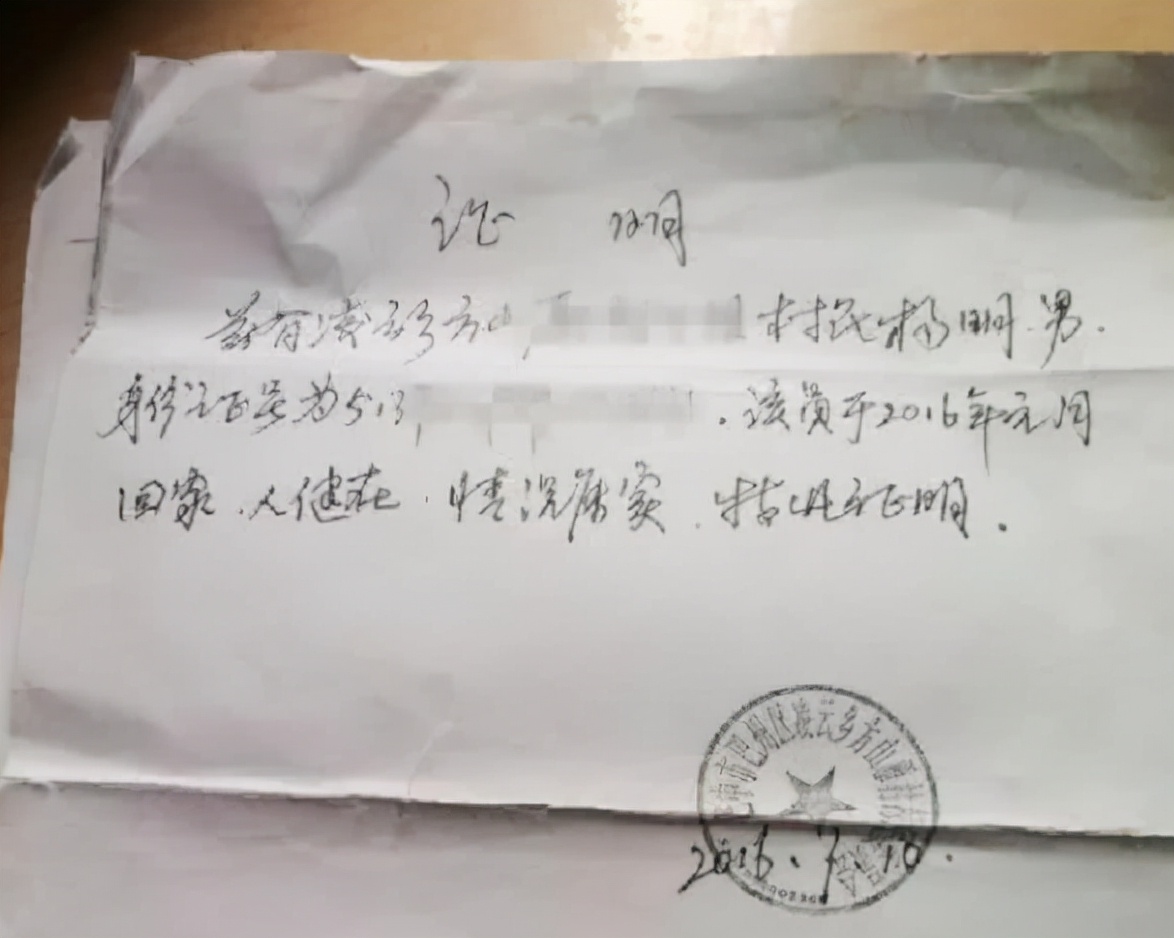 证 明
兹有凌云乡方山 村民杨明，男，
身份证号为513 ，该员于2016年元月
回家，人健在，情况属实，特此证明。
巴中市巴州区凌云乡方山
2016.7.10.